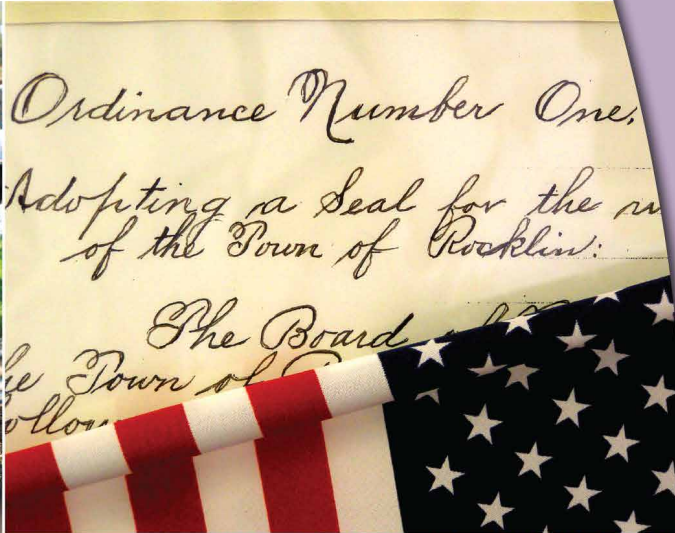 Ordinance Number One.
Adopting a Seal for the
of the Town of Rocklin:
The Board
Town of